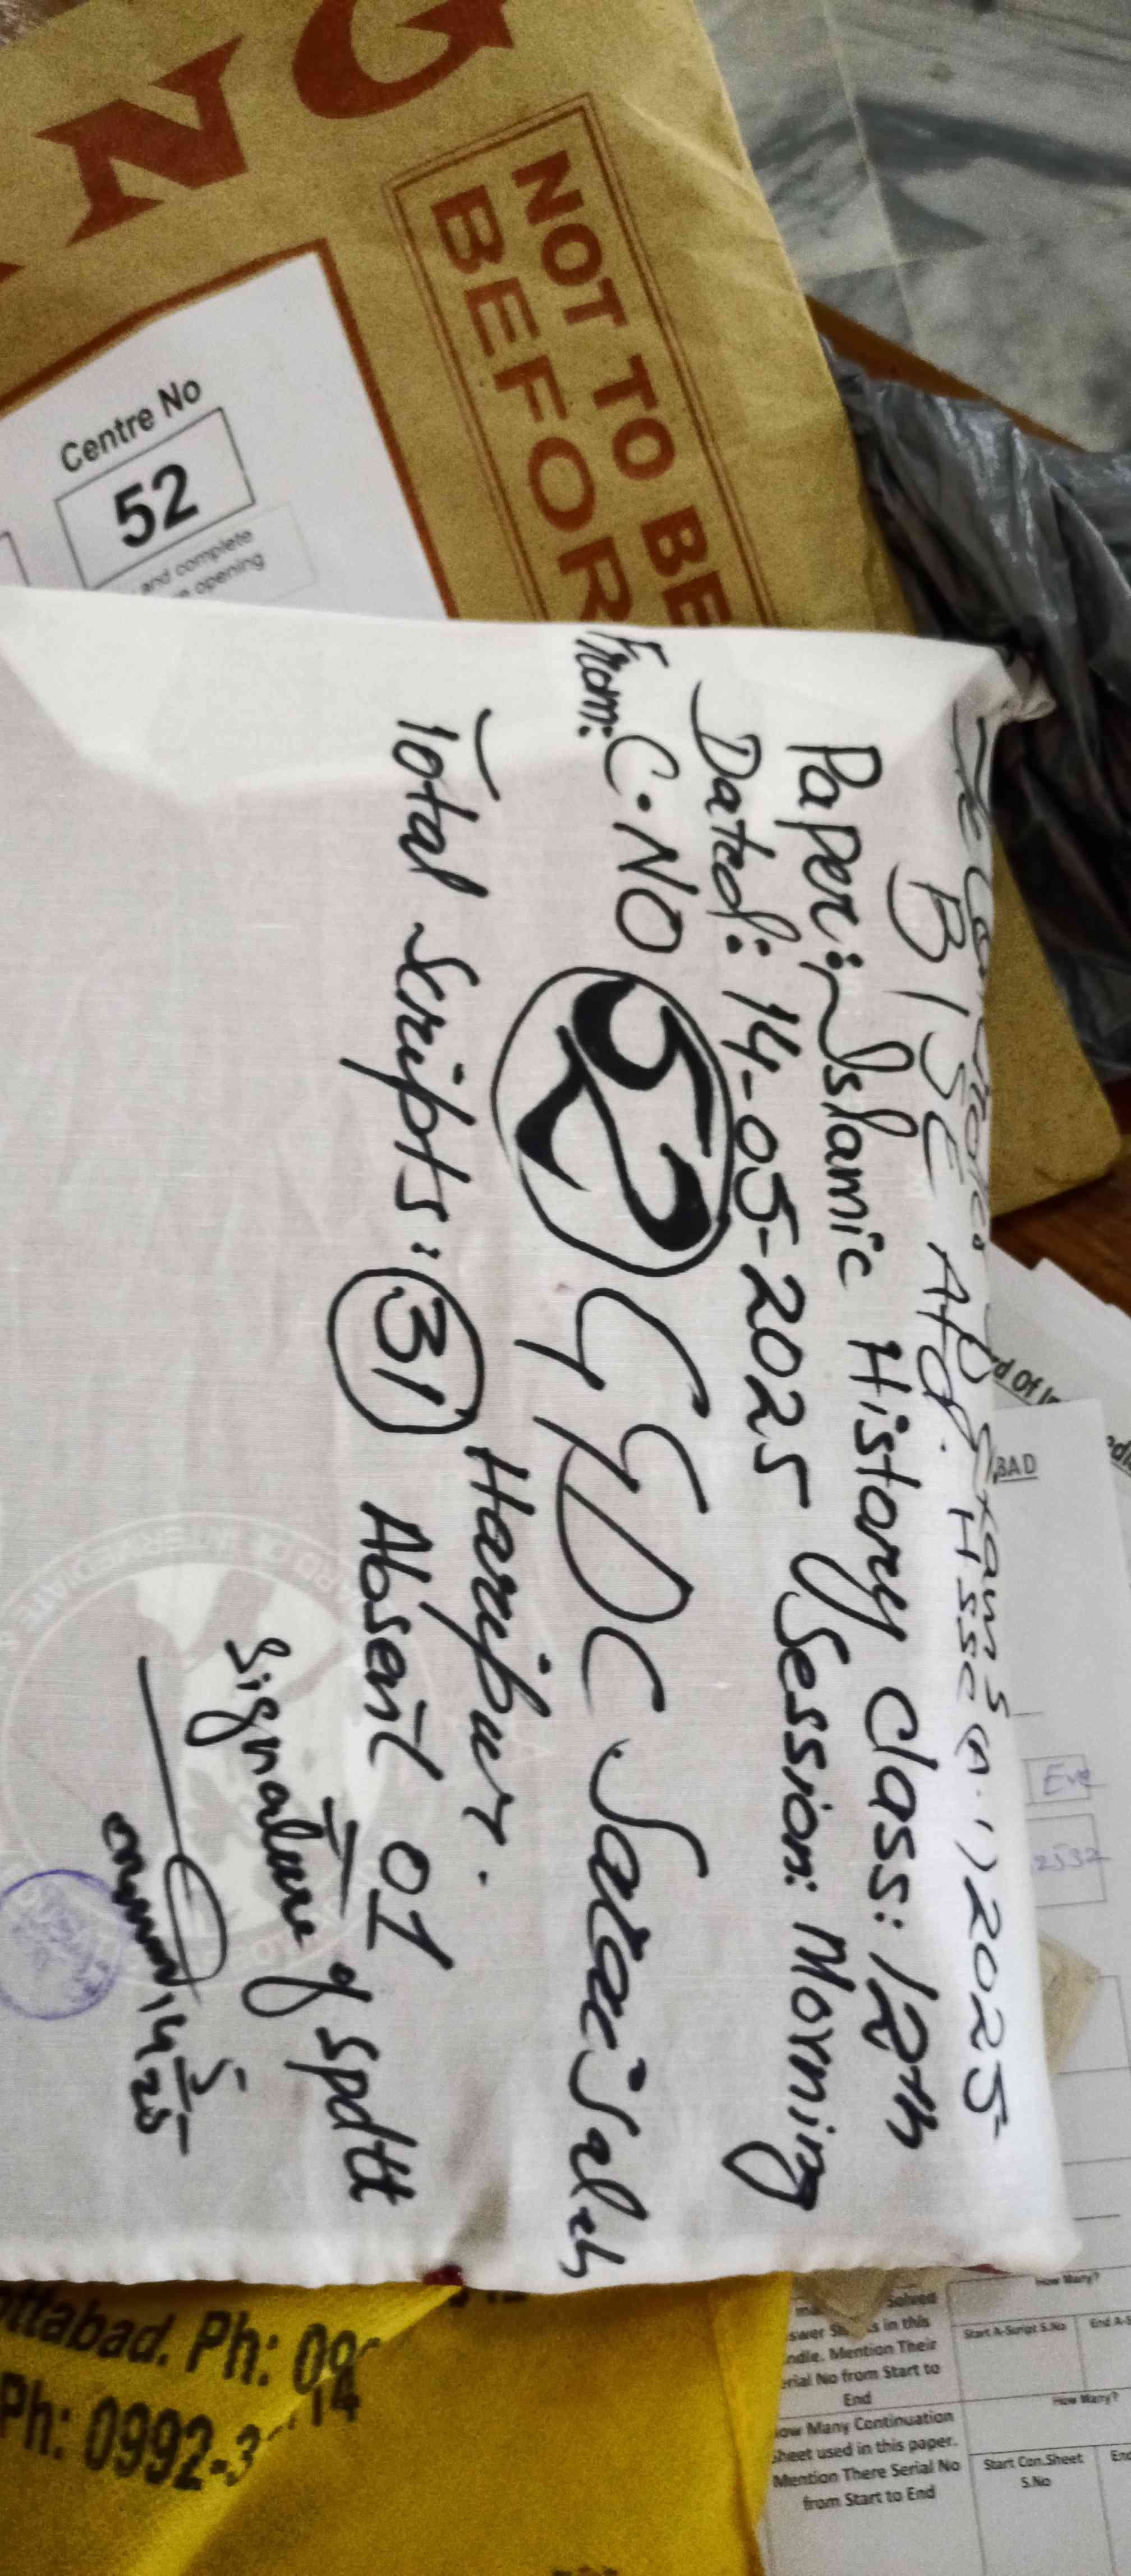 NG
NOT TO BE
BEFOR
Centre No
52
and complete
opening
BISE Atd. HSSC (A.I) 2025
Paper: Islamic History Class: 12th
Dated: 14-05-2025 Session: Morning
From: C.NO 52 GGDC Sarai Saleh
Haripur.
Total Scripts: 31 Absent 01
Signature of Spdtt
14/5/25
BOARD OF INTERMEDIATE
ttabad. Ph: 09
Ph: 0992-3
14
rd Of In
BAD
Eve
2532
Solved
in this
ndle. Mention Their
erial No from Start to
End
How Many?
Start A-Script S.No
End A-S
How Many Continuation
Sheet used in this paper.
Mention There Serial No
from Start to End
How Many?
Start Con.Sheet
S.No